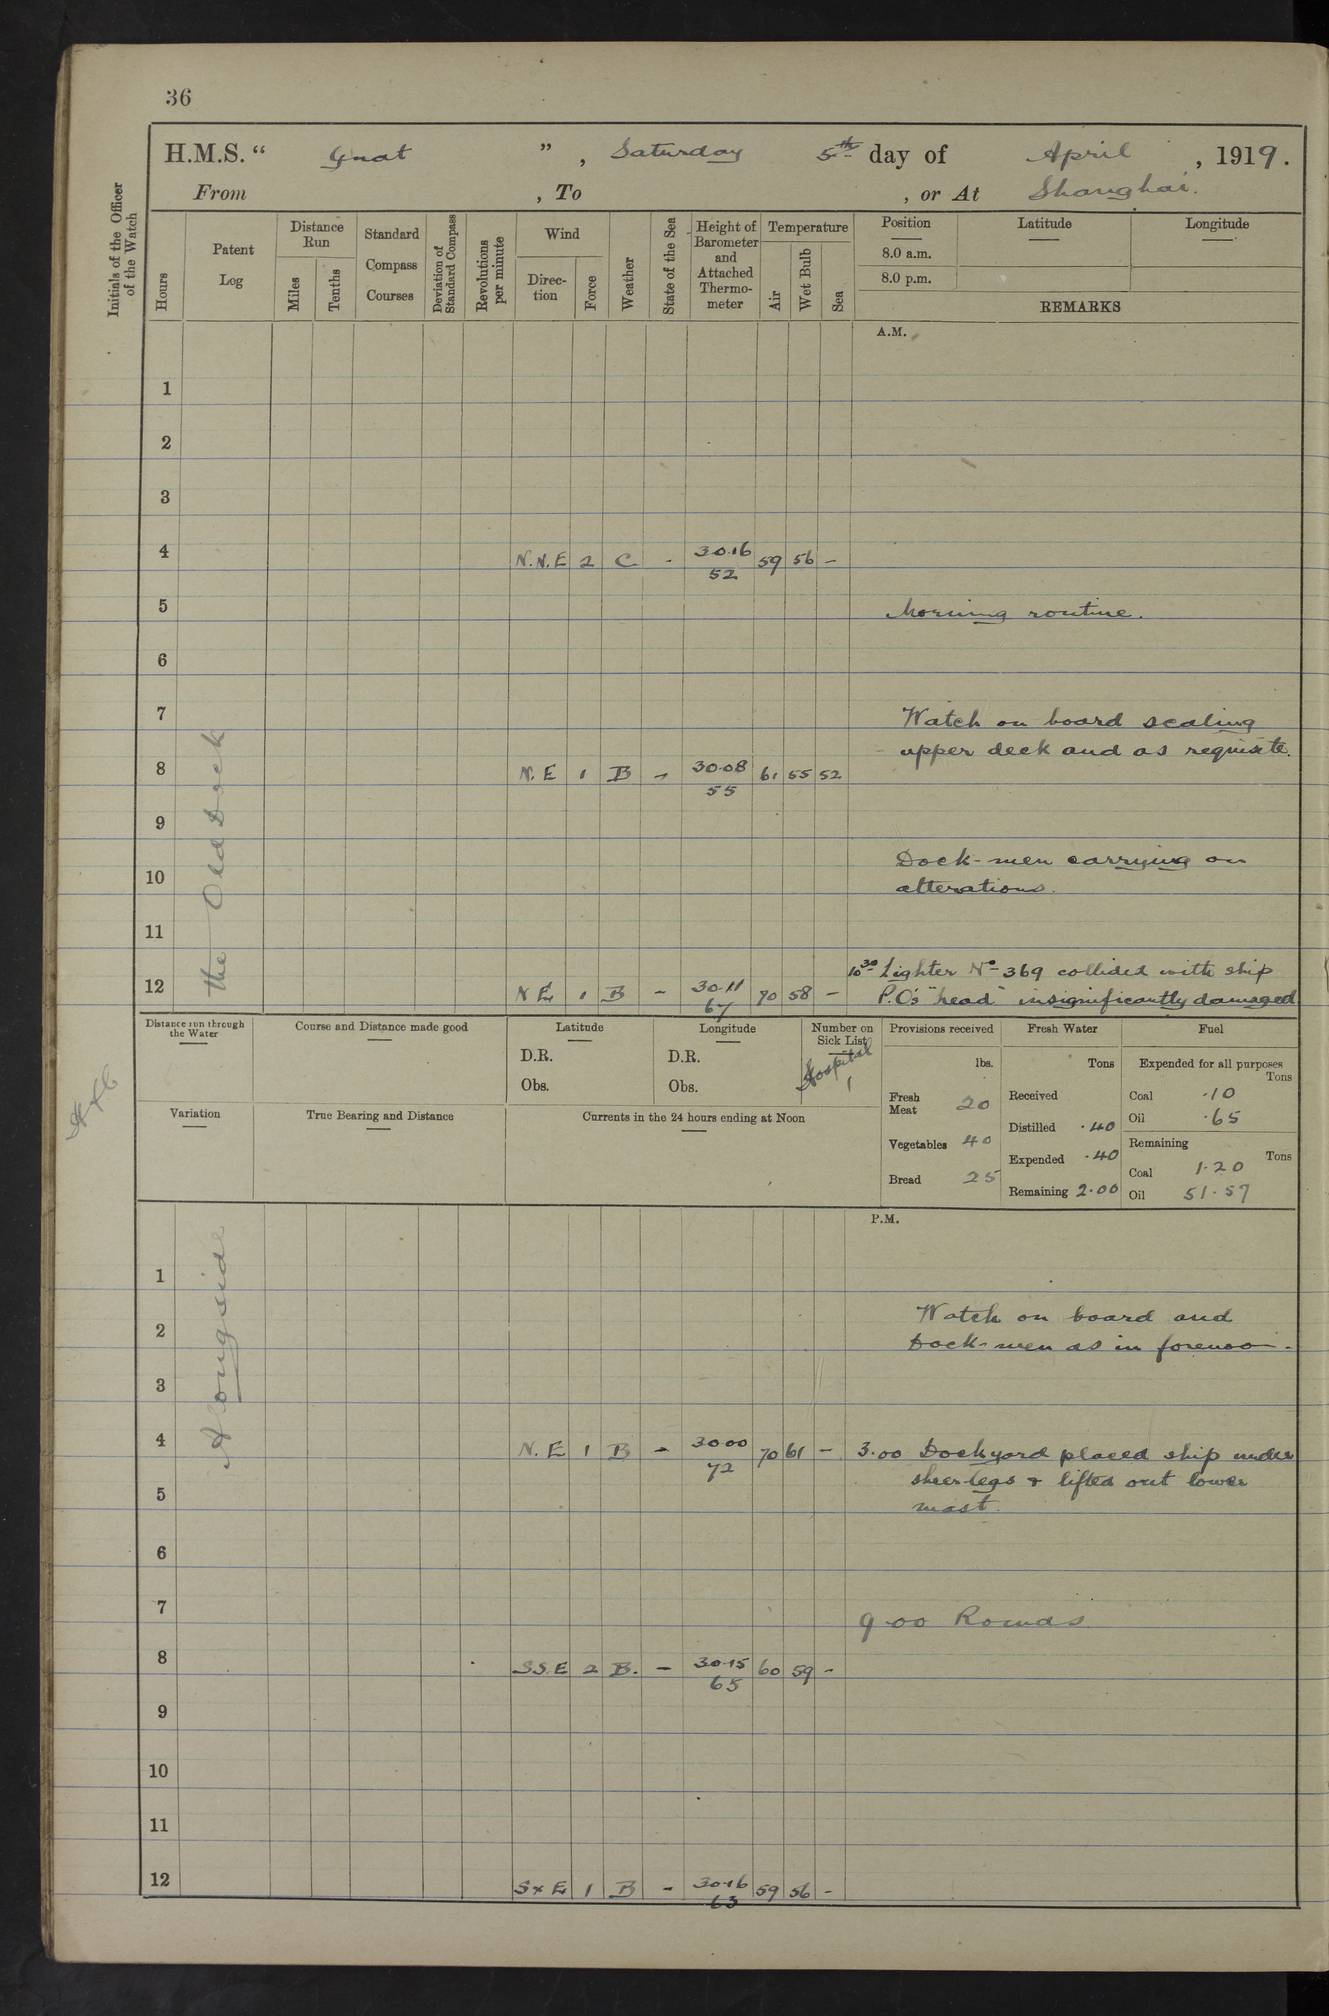 36
H.M.S. “ Gnat ” , Saturday 5th day of April , 1919.
From , To , or At Shanghai.
Initials of the Officer of the Watch
Hours
Patent Log
Distance Run
Miles
Tenths
Standard Compass Courses
Deviation of Standard Compass
Revolutions per minute
Wind
Direction
Force
Weather
State of the Sea
Height of Barometer and Attached Thermometer
Temperature
Air
Wet Bulb
Sea
Position Latitude Longitude
8.0 a.m.
8.0 p.m.
REMARKS
A.M.
1
2
3
4 N.N.E 2 C - 30.16 59 56 -
52
5 Morning routine.
6
7 Watch on board scaling
upper deck and as requisite.
8 N.E 1 B - 30.08 61 55 52
55
9
Dock-men carrying on
10 alterations.
11
10 30 Lighter No 369 collided with ship
12 N E 1 B - 30.11 70 58 - P.O's "head" insignificantly damaged
67
Alongside the Old Dock
Distance run through the Water
Course and Distance made good
Latitude
D.R.
Obs.
Longitude
D.R.
Obs.
Number on Sick List
Hospital
1
Variation
True Bearing and Distance
Currents in the 24 hours ending at Noon
Provisions received
lbs.
Fresh Meat 20
Vegetables 40
Bread 25
Fresh Water
Tons
Received
Distilled ·40
Expended ·40
Remaining 2·00
Fuel
Expended for all purposes
Tons
Coal ·10
Oil ·65
Remaining
Tons
Coal 1·20
Oil 51·57
P.M.
1
Watch on board and
2 Dock-men as in forenoon.
3
4 N.E 1 B - 30.00 70 61 - 3.00 Dockyard placed ship under
72
sheer-legs & lifted out lower
5 mast.
6
7 9.00 Rounds
8 S.S.E 2 B. - 30.15 60 59 -
65
9
10
11
12 SxE 1 B - 30.16 59 56 -
63